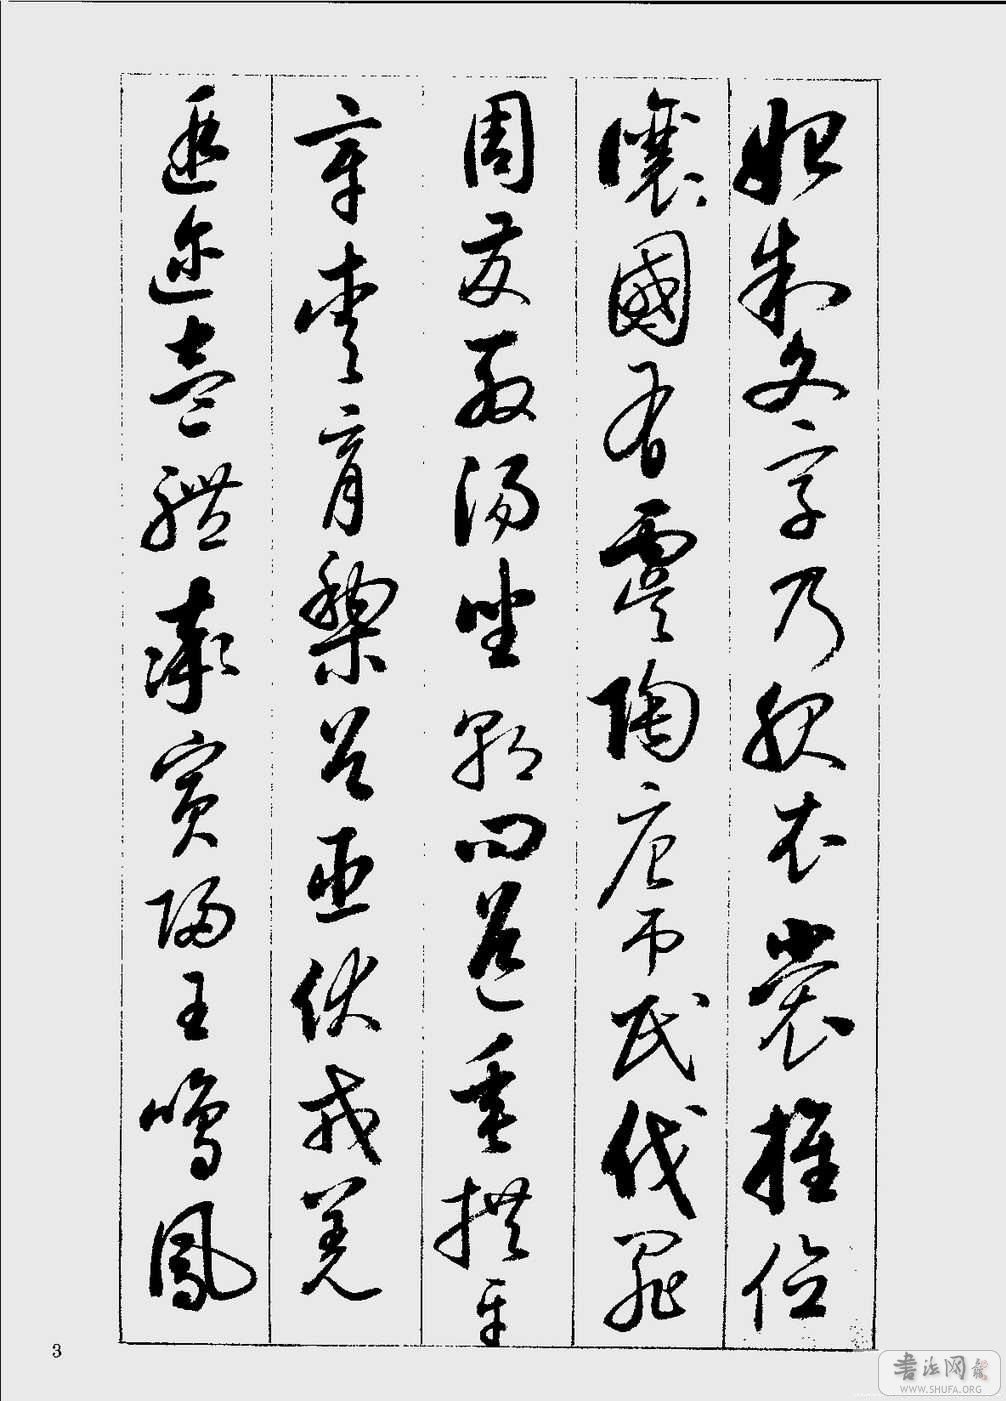 始制文字乃服衣裳推位
讓國有虞陶唐弔民伐罪
周發殷湯坐朝問道垂拱平
章愛育黎首臣伏戎羌
遐迩壹體率賓歸王鳴鳳
3
书法网
WWW.SHUFA.ORG